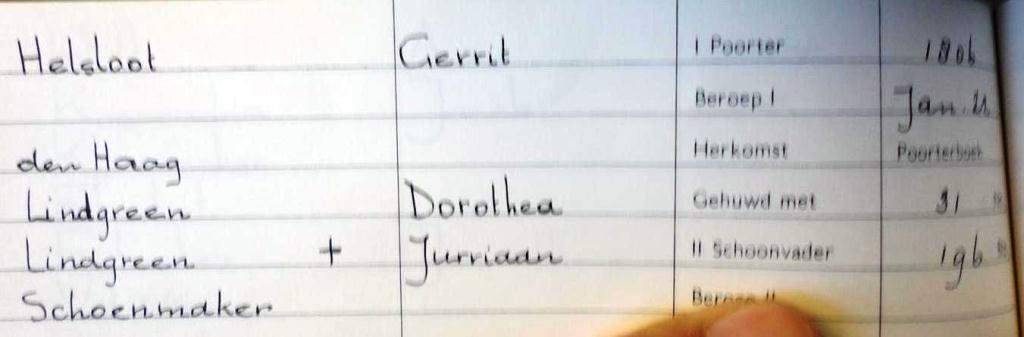 Helsloot Gerrit I Poorter 1806
Beroep I Jan. 21
den Haag Herkomst Poorterboek
Lindgreen Dorothea Gehuwd met 31
Lindgreen + Jurriaan II Schoonvader 196
Schoenmaker Beroep II